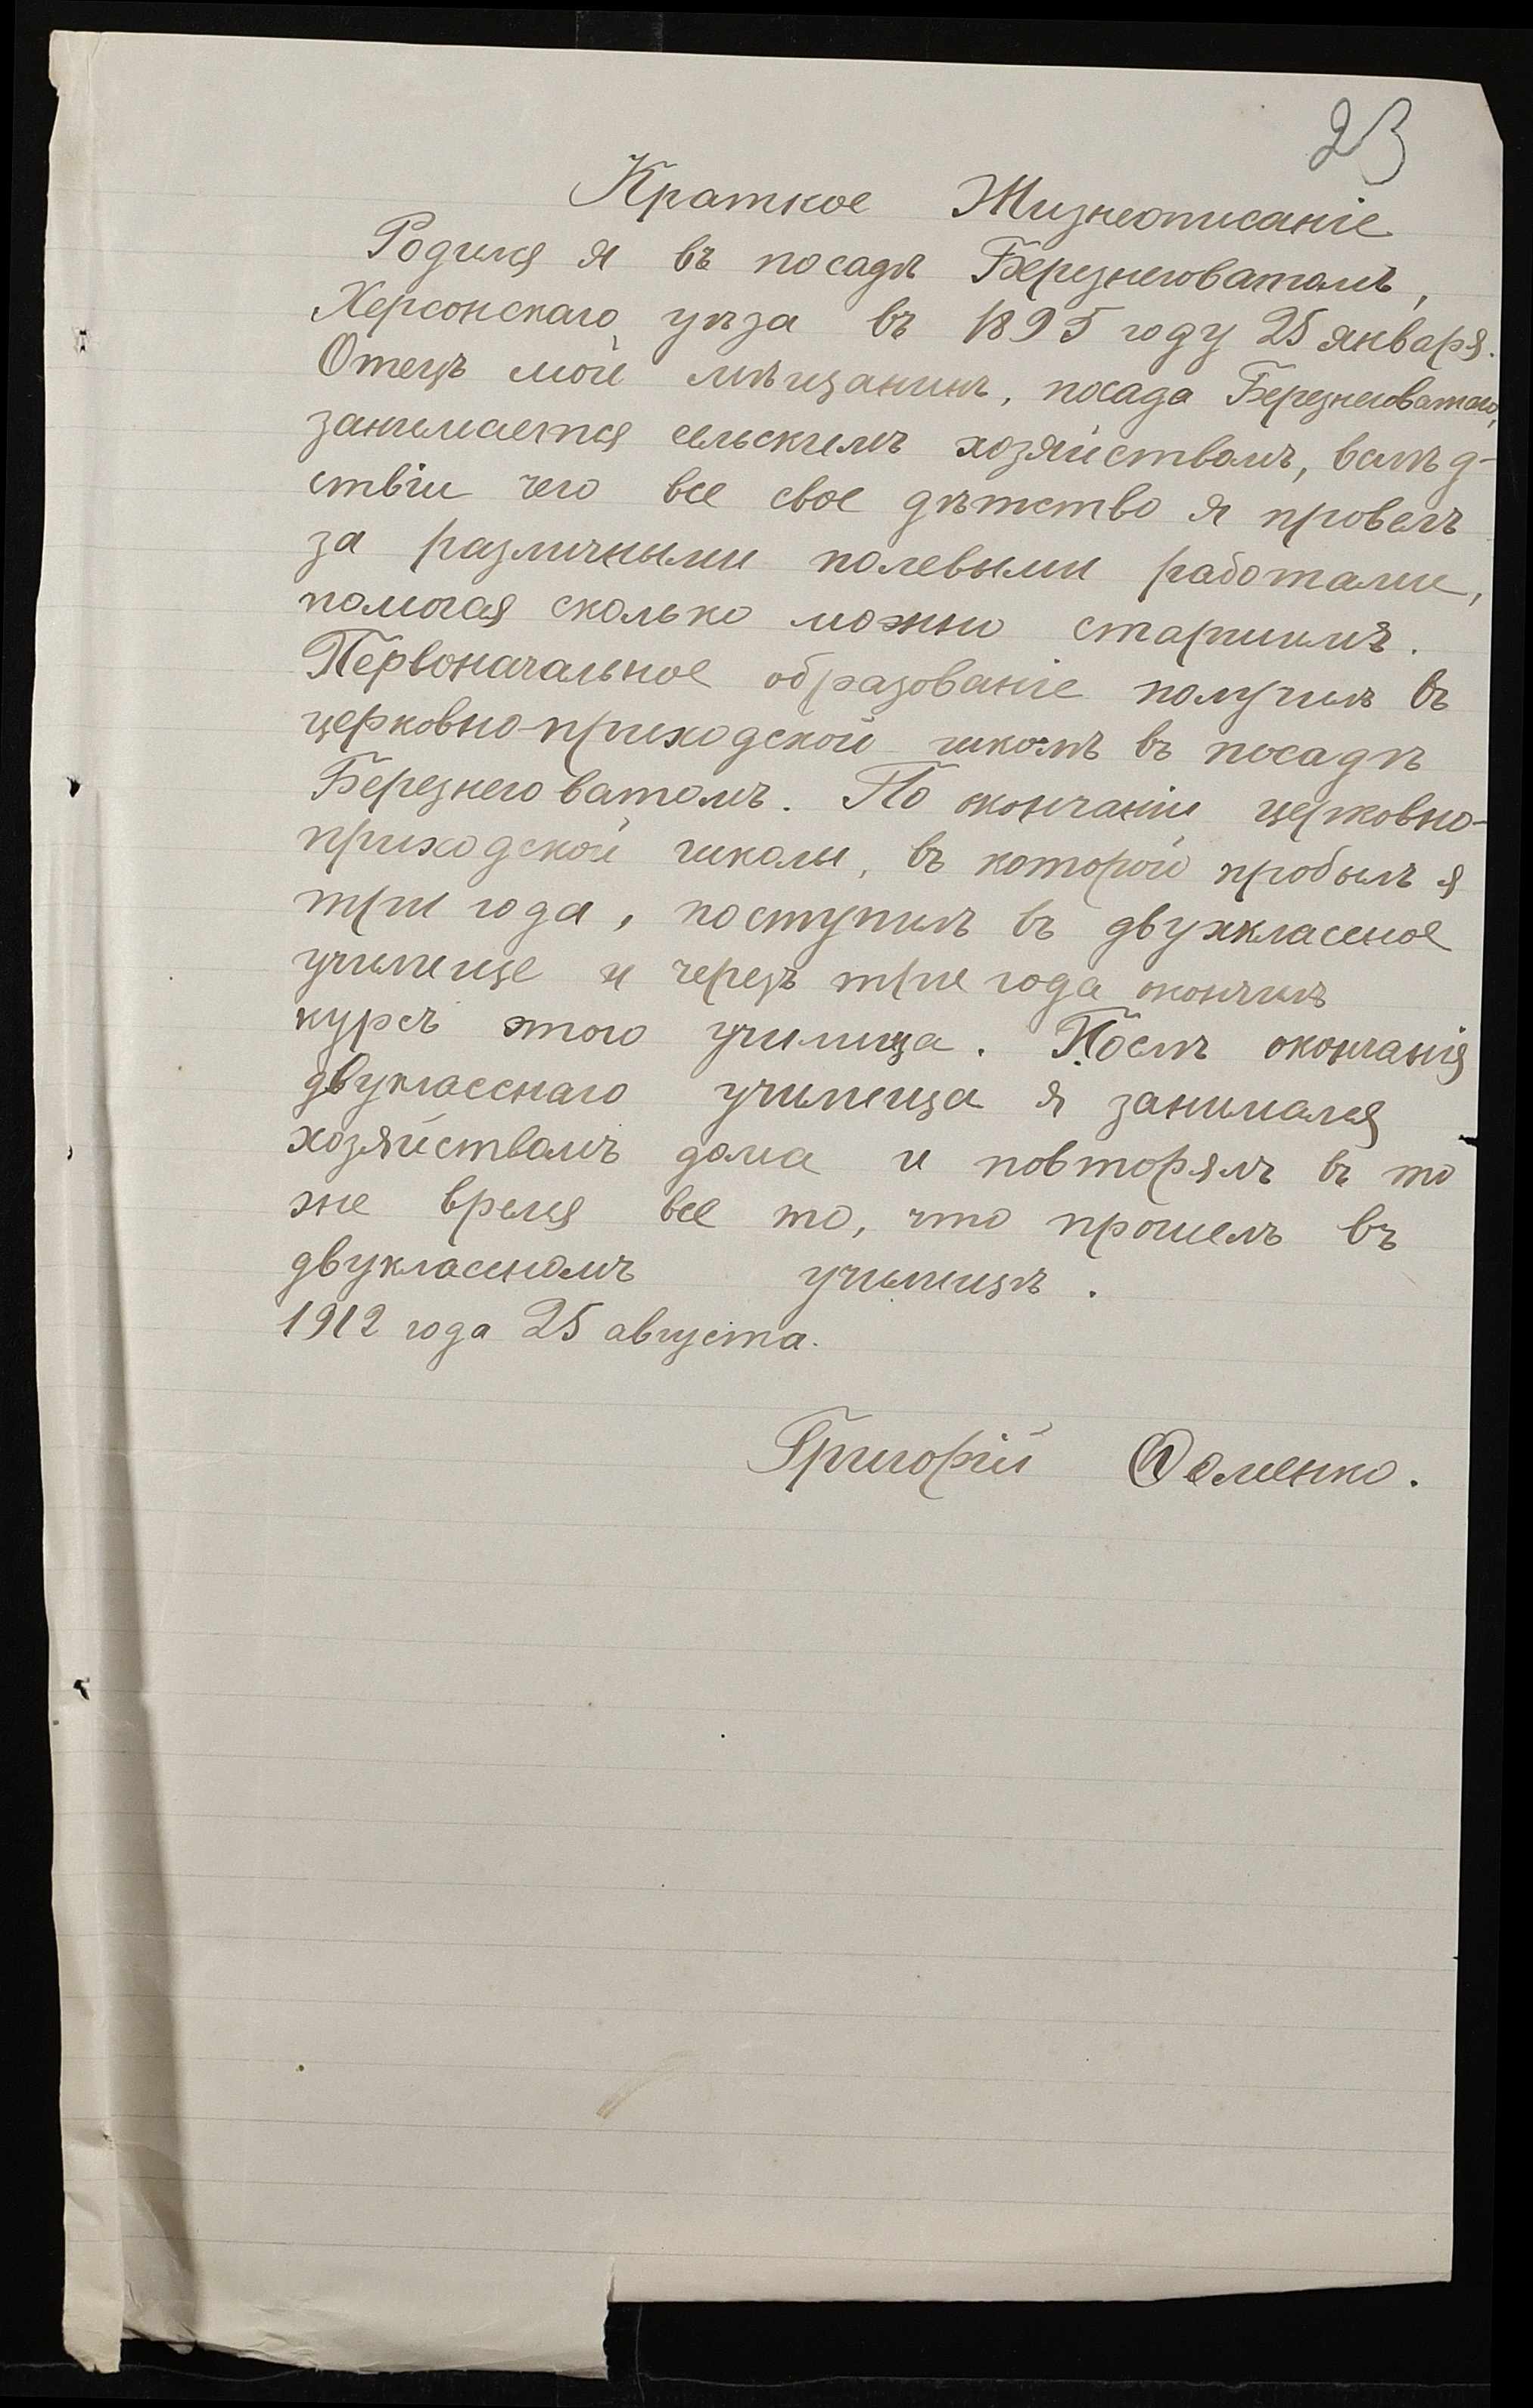 23
Краткое Жизнеописаніе
Родился я въ посадѣ Березнеговатомъ,
Херсонскаго уѣзда въ 1895 году 25 января.
Отецъ мой мѣщанинъ, посада Березнеговатаго,
занимается сельскимъ хозяйствомъ, вслѣд-
ствіи чего все свое дѣтство я провелъ
за различными полевыми работами,
помогая сколько можно старшимъ.
Первоначальное образованіе получилъ въ
церковно-приходской школѣ въ посадѣ
Березнеговатомъ. По окончаніи церковно-
приходской школы, въ которой пробылъ я
три года, поступилъ въ двухклассное
училище и черезъ три года окончилъ
курсъ этого училища. Послѣ окончанія
двукласснаго училища я занимался
хозяйствомъ дома и повторялъ въ то
же время все то, что прошелъ въ
двуклассномъ училищѣ.
1912 года 25 августа.
Григорій Фоменко.